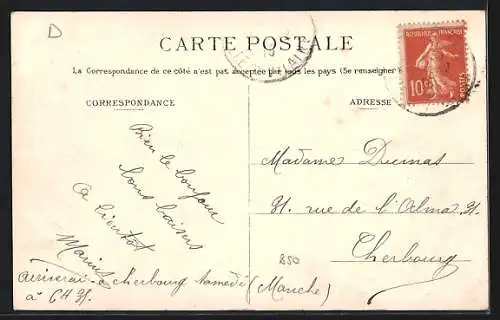 D
CARTE POSTALE
La Correspondance de ce côté n'est pas acceptée par tous les pays (Se renseigner
REPUBLIQUE FRANÇAISE
10
POSTES
CORRESPONDANCE
ADRESSE
Bien le bonjour
bons baisers
a bientot
Marius
arriverai a cherbourg samedi
à 6H 31.
Madame Dumas
31. rue de l'Alma 31.
Cherbourg
(Manche)
850